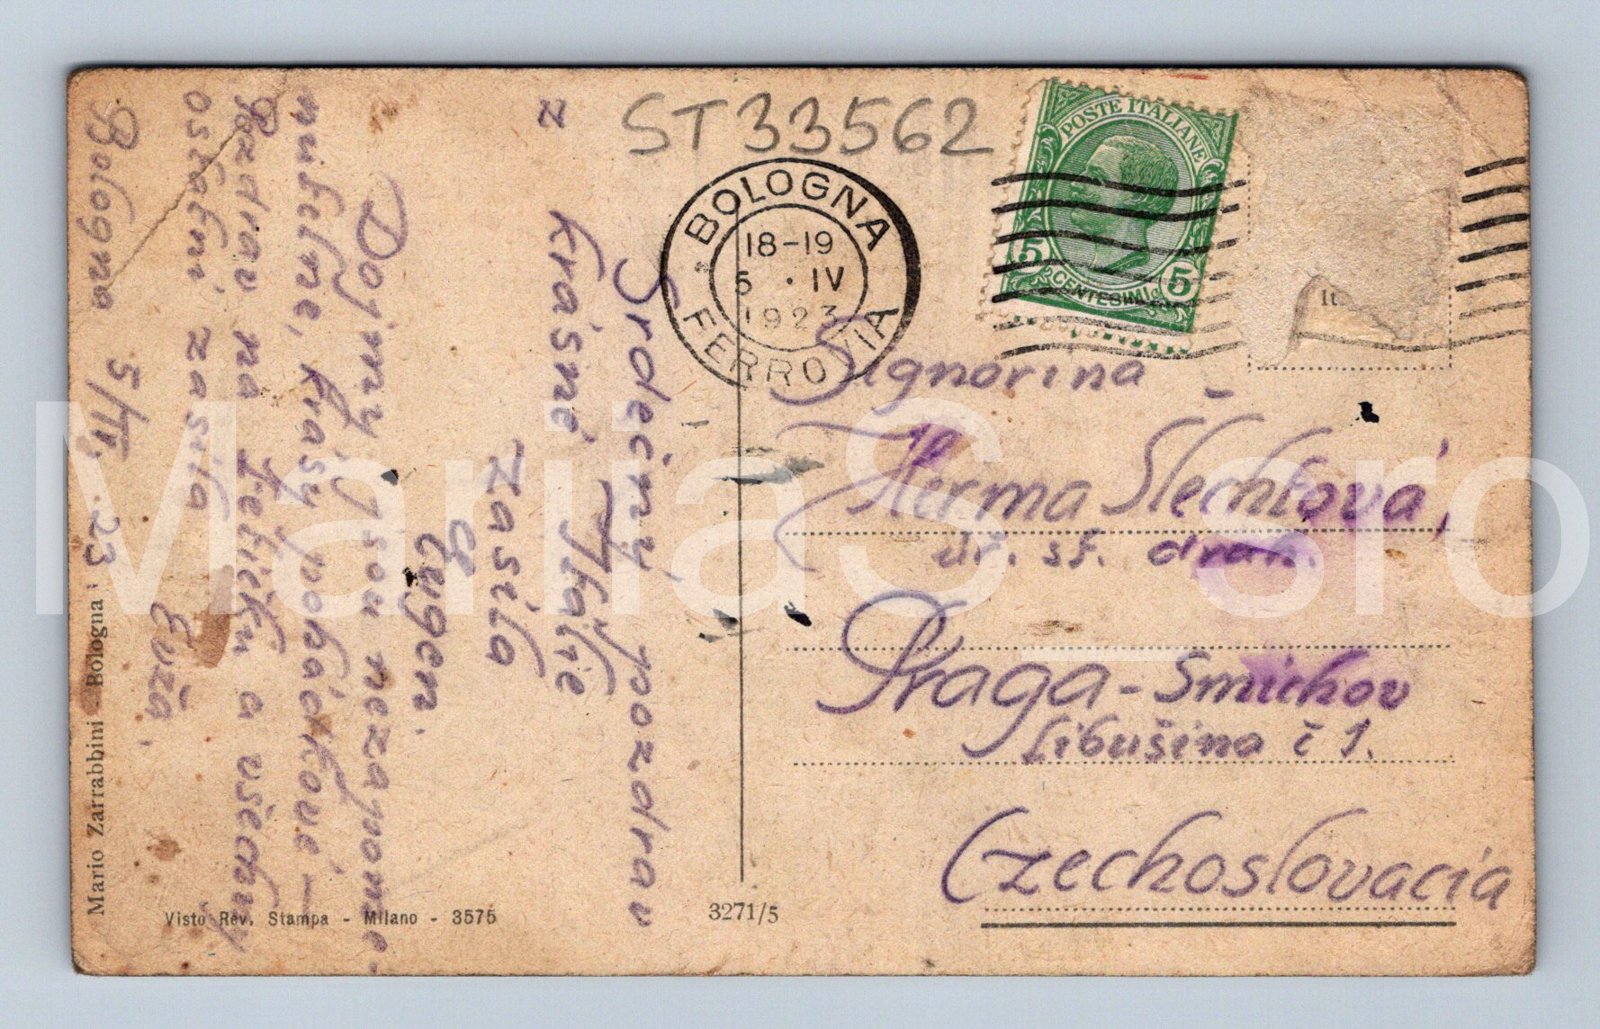 ST33562
BOLOGNA
18-19
5 · IV
1923
FERROVIA
POSTE ITALIANE
5 CENTESIMI 5
It
Signorina
Herma Šlechtová,
úř. st. drah.
Praga - Smichov
Libušina č 1.
Czechoslovacia
Srdečný pozdrav
z krásné Italie
zasílá
Eugen.
Dojmy, jsou nezapome-
nutelné, krásy pohádkové -
Pozdrav na tetičku a všechny
ostatní zasílá Evža.
Bologna 5/IV. 23.
Mario Zarrabbini - Bologna
Visto Rev. Stampa - Milano - 3575
3271/5
MarijaS sro